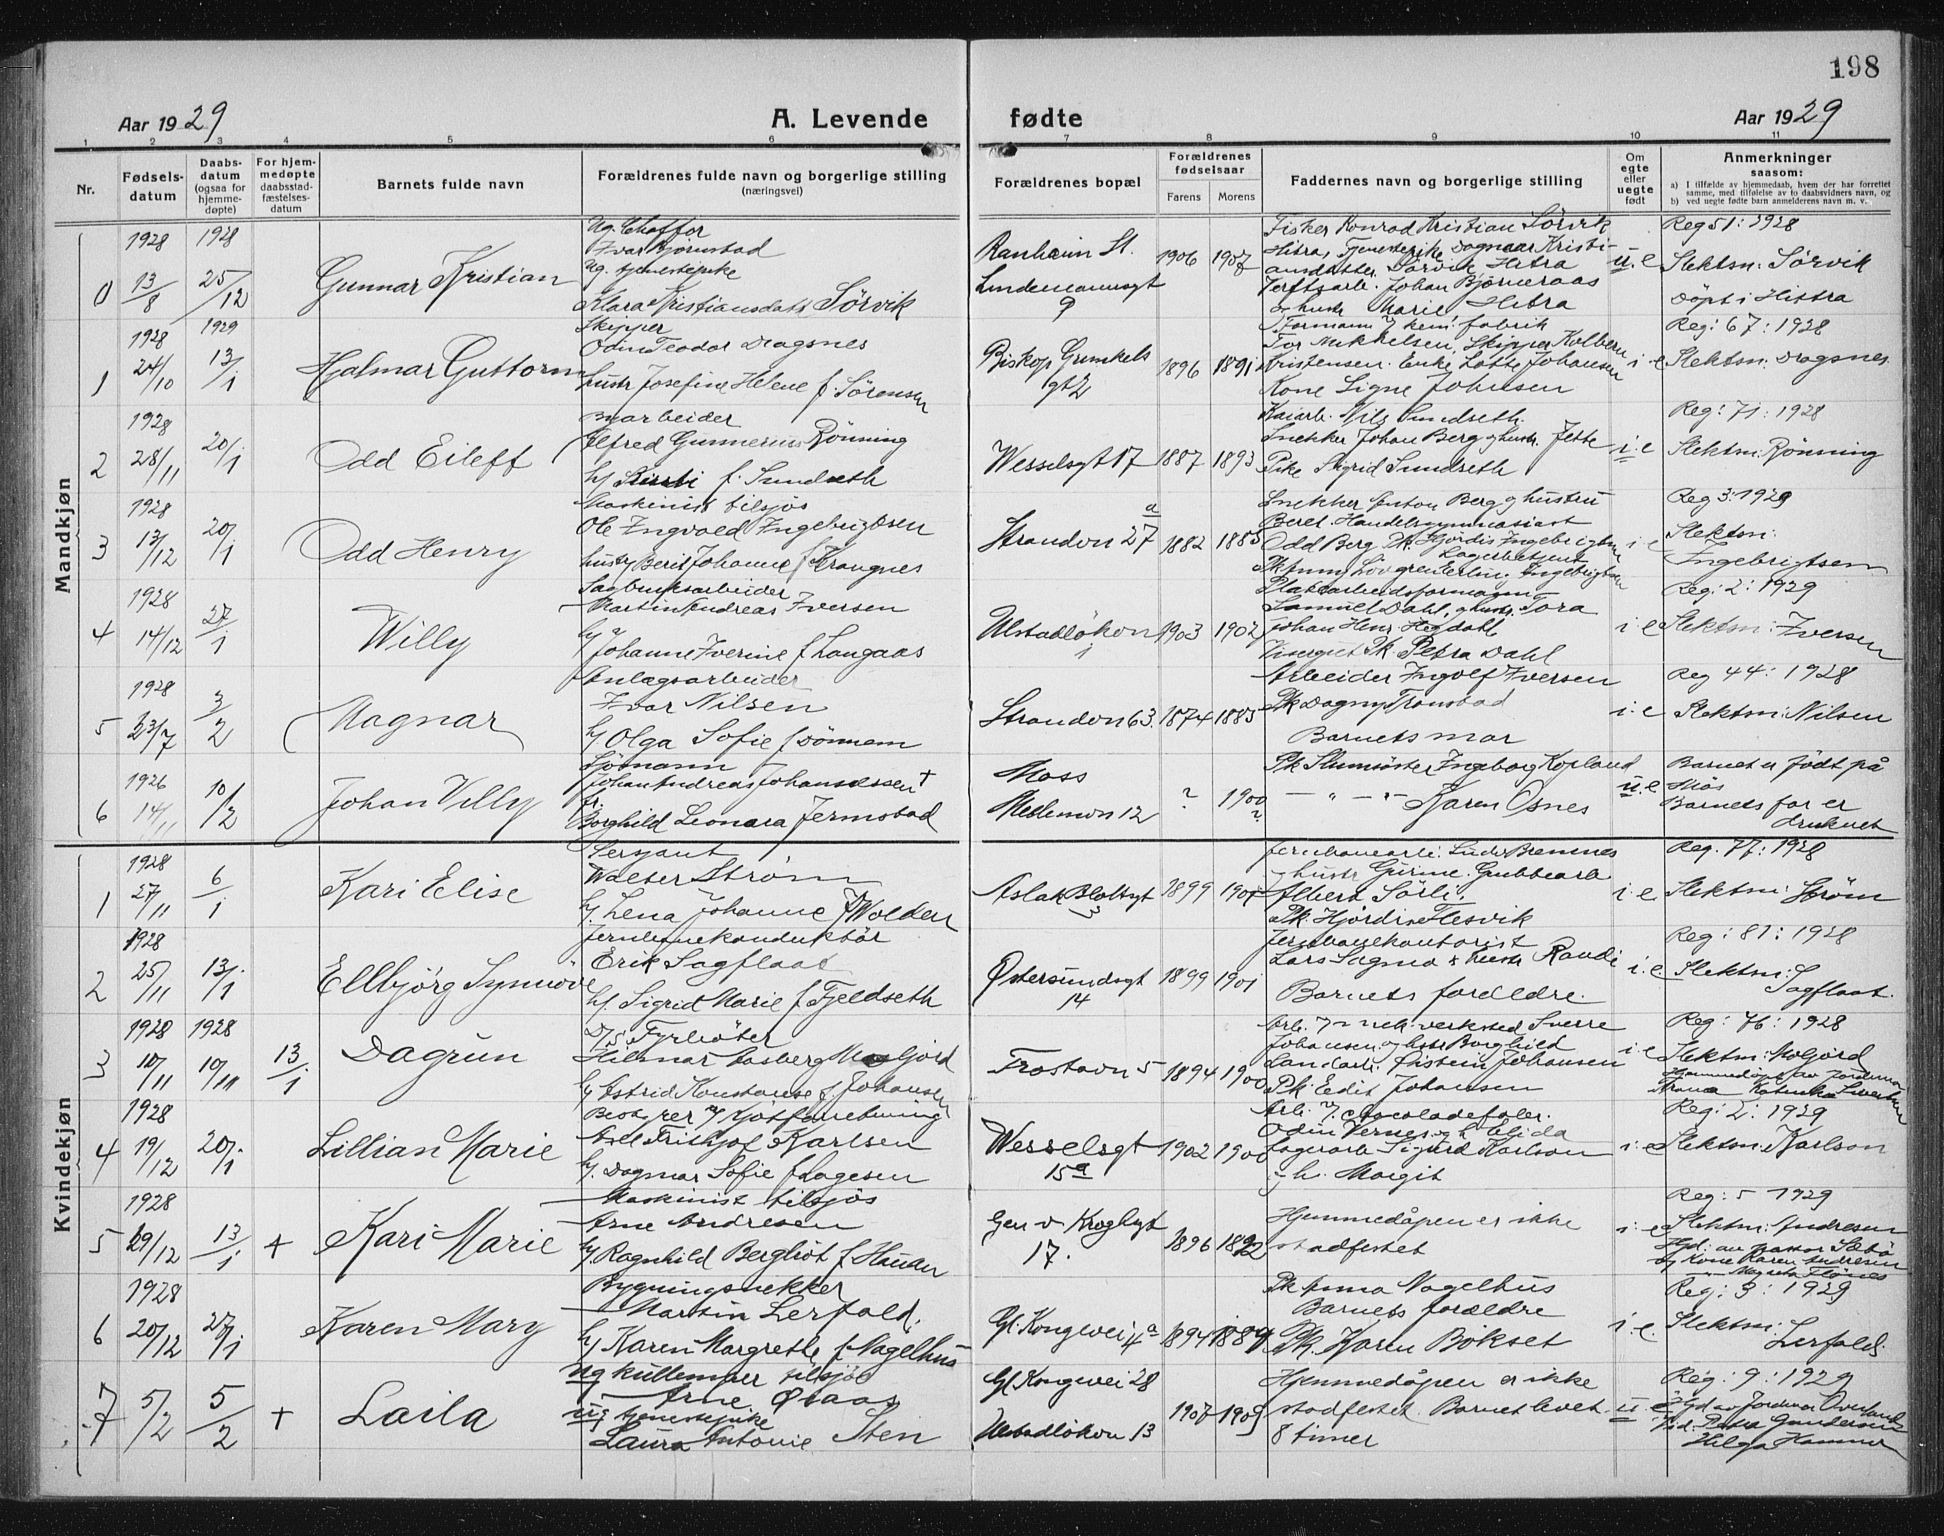 198
Aar 1929
A. Levende
fødte
Aar 1929
1 2 3 4 5 6 7 8 9 10 11
Nr.
Fødsels-
datum
Daabs-
datum
(ogsaa for
hjemme-
døpte)
For hjem-
medøpte
daabsstad-
fæstelses-
datum
Barnets fulde navn
Forældrenes fulde navn og borgerlige stilling
(næringsvei)
Forældrenes bopæl
Forældrenes
fødselsaar
Farens Morens
Faddernes navn og borgerlige stilling
Om
egte
eller
uegte
født
Anmerkninger
saasom:
a) I tilfælde av hjemmedaab, hvem der har forrettet
samme, med tilføielse av to daabsvidners navn, og
b) ved uegte fødte barn anmelderens navn m. v.
Mandkjøn
1928 1928
0 13/8 25/12
Gunnar Kristian
Ug. Chaffør
Ivar Bjørnstad
Ug. tjenestepike
Klara Kristiansdatt. Sørvik
Ranheim St.
Lindemannsgt
9
1906 1907
Fisker Konrad Kristian Sørvik
Hitra, Tjenestepike Dagmar Kristi-
ansdatter Sørvik, Hitra
Johan Bjørneraas
Marie Hitra
u.e
Reg 51: 1928
Slektsn: Sørvik
Døpt i Hittra
1928 1929
1 24/10 13/1
Hjalmar Guttorm
Skipper
Odin Teodor Dragsnes
hustr Josefine Helene f. Sørensen
Biskop Grimkels
gt 2
1896 1891
Formann kem. fabrik
Tor Mikkelsen, Skipper Kolbern
Kristensen. Enke Lotte Johansen
Kone Signe Johnsen
i e
Reg: 67: 1928
Slektsn: Dragsnes
1928
2 28/11 20/1
Odd Eileff
Byarbeider
Alfred Gunnerius Rønning
h/ f. Sundseth
Wesselsgt 17
1887 1893
Kaiarb. Nils Sundseth.
Snekker Johan Berg og hustr. Jette
Pike Sigrid Sundseth
i.e
Reg: 71: 1928
Slektsn: Rønning
1928
3 13/12 20/1
Odd Henry
Maskinist tilsjøs
Ole Ingvald Ingebrigtsen
hustr Berit Johanne f Krangnes
Strandvn 27 a
1882 1885
Snekker Anton Berg og hustru
Beret. Handelsgymnasiast
Odd Berg Pk. Hjørdis Ingebrigtsen
Lagerbetjent
i e
Reg 3: 1929
Slektsn:
Ingebrigtsen
1928
4 14/12 27/1
Willy
Sagbruksarbeider
Martin Andreas Iversen
h/ Johanne Iverine f Langaas
Ulstadløkvn
1
1903 1902
Platearbeidsformann
Samuel Dahl, og hustr. Tora
Johan Henr. Hegdahl
Pk. Petra Dahl
i e
Reg: 2: 1929
Slektsn: Iversen
1928
5 23/7 3/2
Magnar
Anlagsarbeider
Ivar Nilsen
h/ Olga Sofie f Dønnem
Strandvn 63.
1874 1885
Arbeider Ingolf Iversen
Pk Dagny Tronstad
Barnets mor
i.e
Reg 44: 1928
Slektsn: Nilsen
1926
6 14/11 10/2
Johan Villy
Sjømann
Johan Andreas Johannessen +
fr.
Borghild Leonora Jermstad
Moss
Mellemvn 12
? 1900 ?
Pk Ingeborg Kopland
— " — " — Karen Osnes
u.e
Barnet er født på
Barnets far er
druknet
Kvindekjøn
1928
1 27/11 6/1
Kari Elise
Sersjant
Walter Strøm
h/ Lena Johanne f Wolden
Aslak Boltsgt
1899
Jernbanearb. Bremnes
hustr Gurine. Grubbearb
Albert Sørli.
Pk. Hjørdis Flesvik
i e
Reg. 77: 1928
Slektsn: Strøm
1928
2 25/11 13/1
Ellbjørg Synnøve
Jernbanekonduktør
Erik Sagflaat
h/. Sigrid Marie f Fjeldseth
Østersundsgt
14
1899 1901
Jernbanekontorist
Lars Sagmo & hustr Randi
Barnets foreldre.
i. e
Reg: 81: 1928
Slektsn:
Sagflaat.
1928 1928
3 10/11 10/11 13/1
Dagrun
D/S. Fyrbøter
Hilmar Aasberg Mogfjord
h/ Astrid Konstanse f. Johansen
Frostavn 5
1894 1900
Arb. mek. verksted Sverre
Johansen og hstr Borghild
Landarb. Øistein Johansen
Pk. Edit Johansen
i e
Reg: 76: 1928
Hjemmedøpt av Jordmor
1928
4 19/12 20/1
Lillian Marie
Axel Fritjof Karlsen
h/. Dagmar Sofie f Lagesen
Wesselsgt
15 a
1902 1900
Arb. chocoladefabr.
Odin Vernes og h Elida
Lagerarb Sigurd Karlson
& h. Margit
i e
Reg: 2: 1929
Slektsn: Karlson
1928
5 29/12 13/1 +
Kari Marie
Maskinist tilsjøs
Arne Andresen
h/ Ragnhild Bergliot f Hauan
Gen v Kroghsgt
17.
1896 1892
Hjemmedåpen er ikke
stadfestet
i. e
Reg: 5 1929
Slektsn: Andresen
Hjd: av pastor Sæbø
og Kone Karen Andresen
1928
6 20/12 27/1
Karen Mary
Bygningsnekker
Martin Lerfald.
h/ Karen Margrethe f Nagelhus
Gl. Kongevei 4 a
1894 1889
Pk Anna Nagelhus
Barnets foreldre
Pk. Karen Bökset
i. e.
Reg: 3: 1929
Slektsn:
Lerfald.
7 5/2 5/2 +
Laila
Ug kullemper tilsjøs
Arne Øvaas
ug tjenestepike
Laura Antonie Sten
Gl. Kongevei 28
Ulstadløkvn 13
1907 1909
Hjemmedåpen er ikke
stadfestet. Barnet levet
8 timer
u e
Reg: 9: 1929
Hjd av Jordmor Overland
Petra Gundersen
Helga Hammer